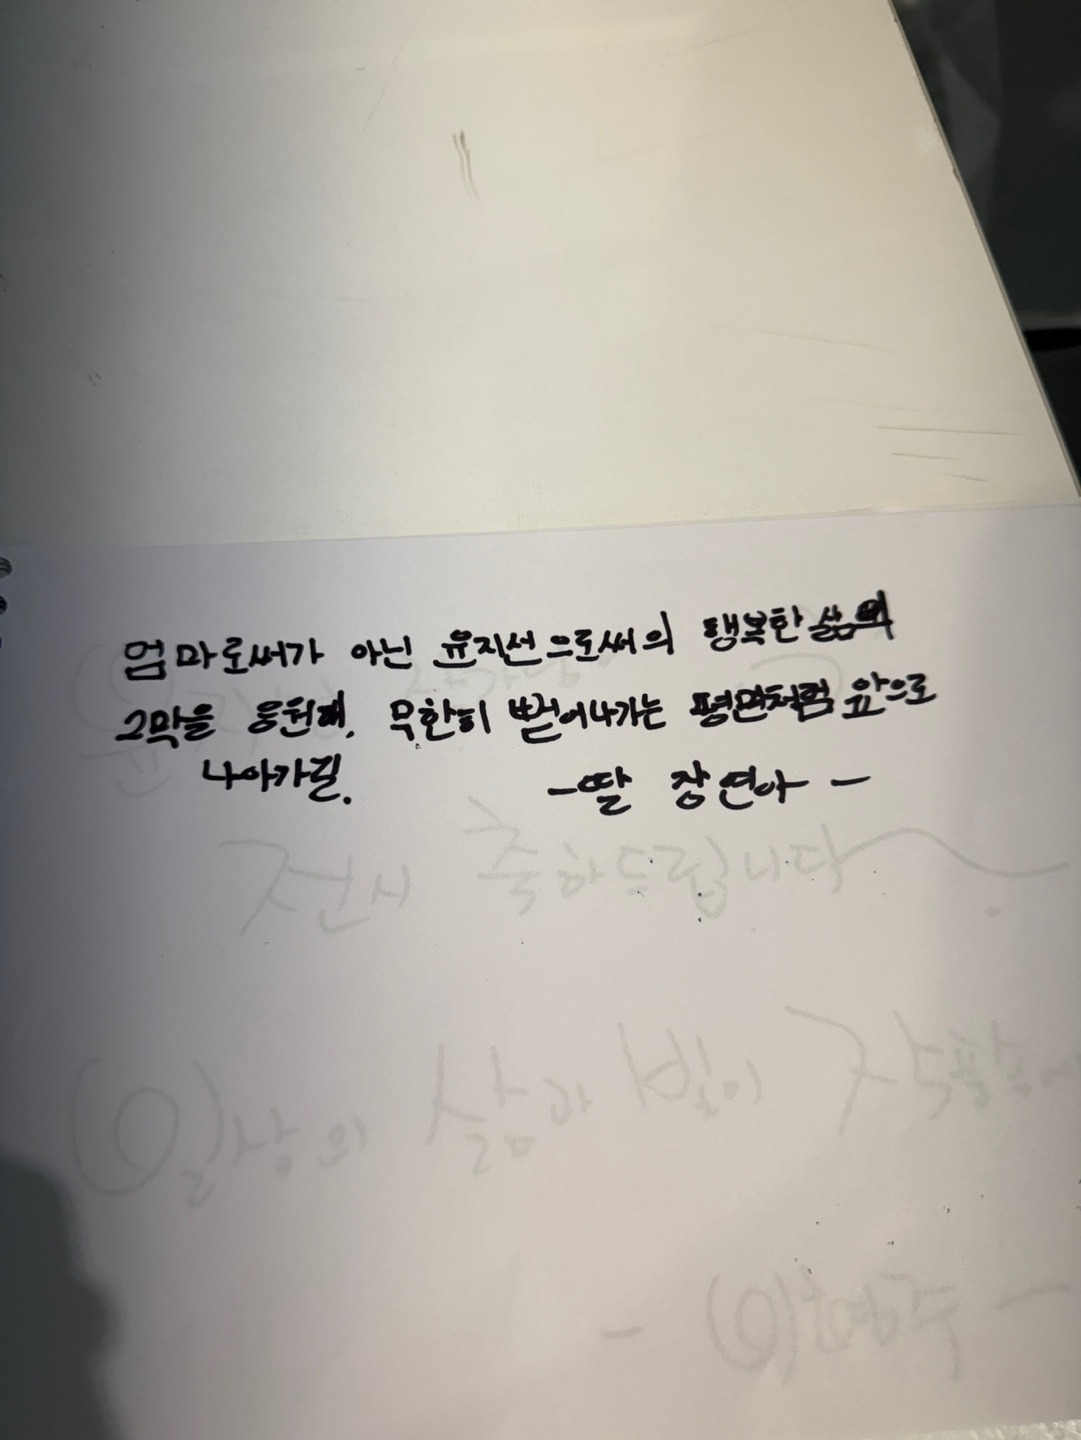 엄마로써가 아닌 윤지선으로써의 행복한 삶의
2막을 응원해. 무한히 뻗어나가는 평면처럼 앞으로
나아가길.
-딸 장연아-
전시 축하드립니다
일상의 삶과 빛이 작품에